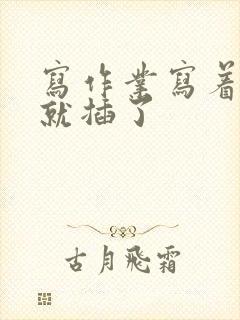 寫作業寫着
就插了
古月飛霜